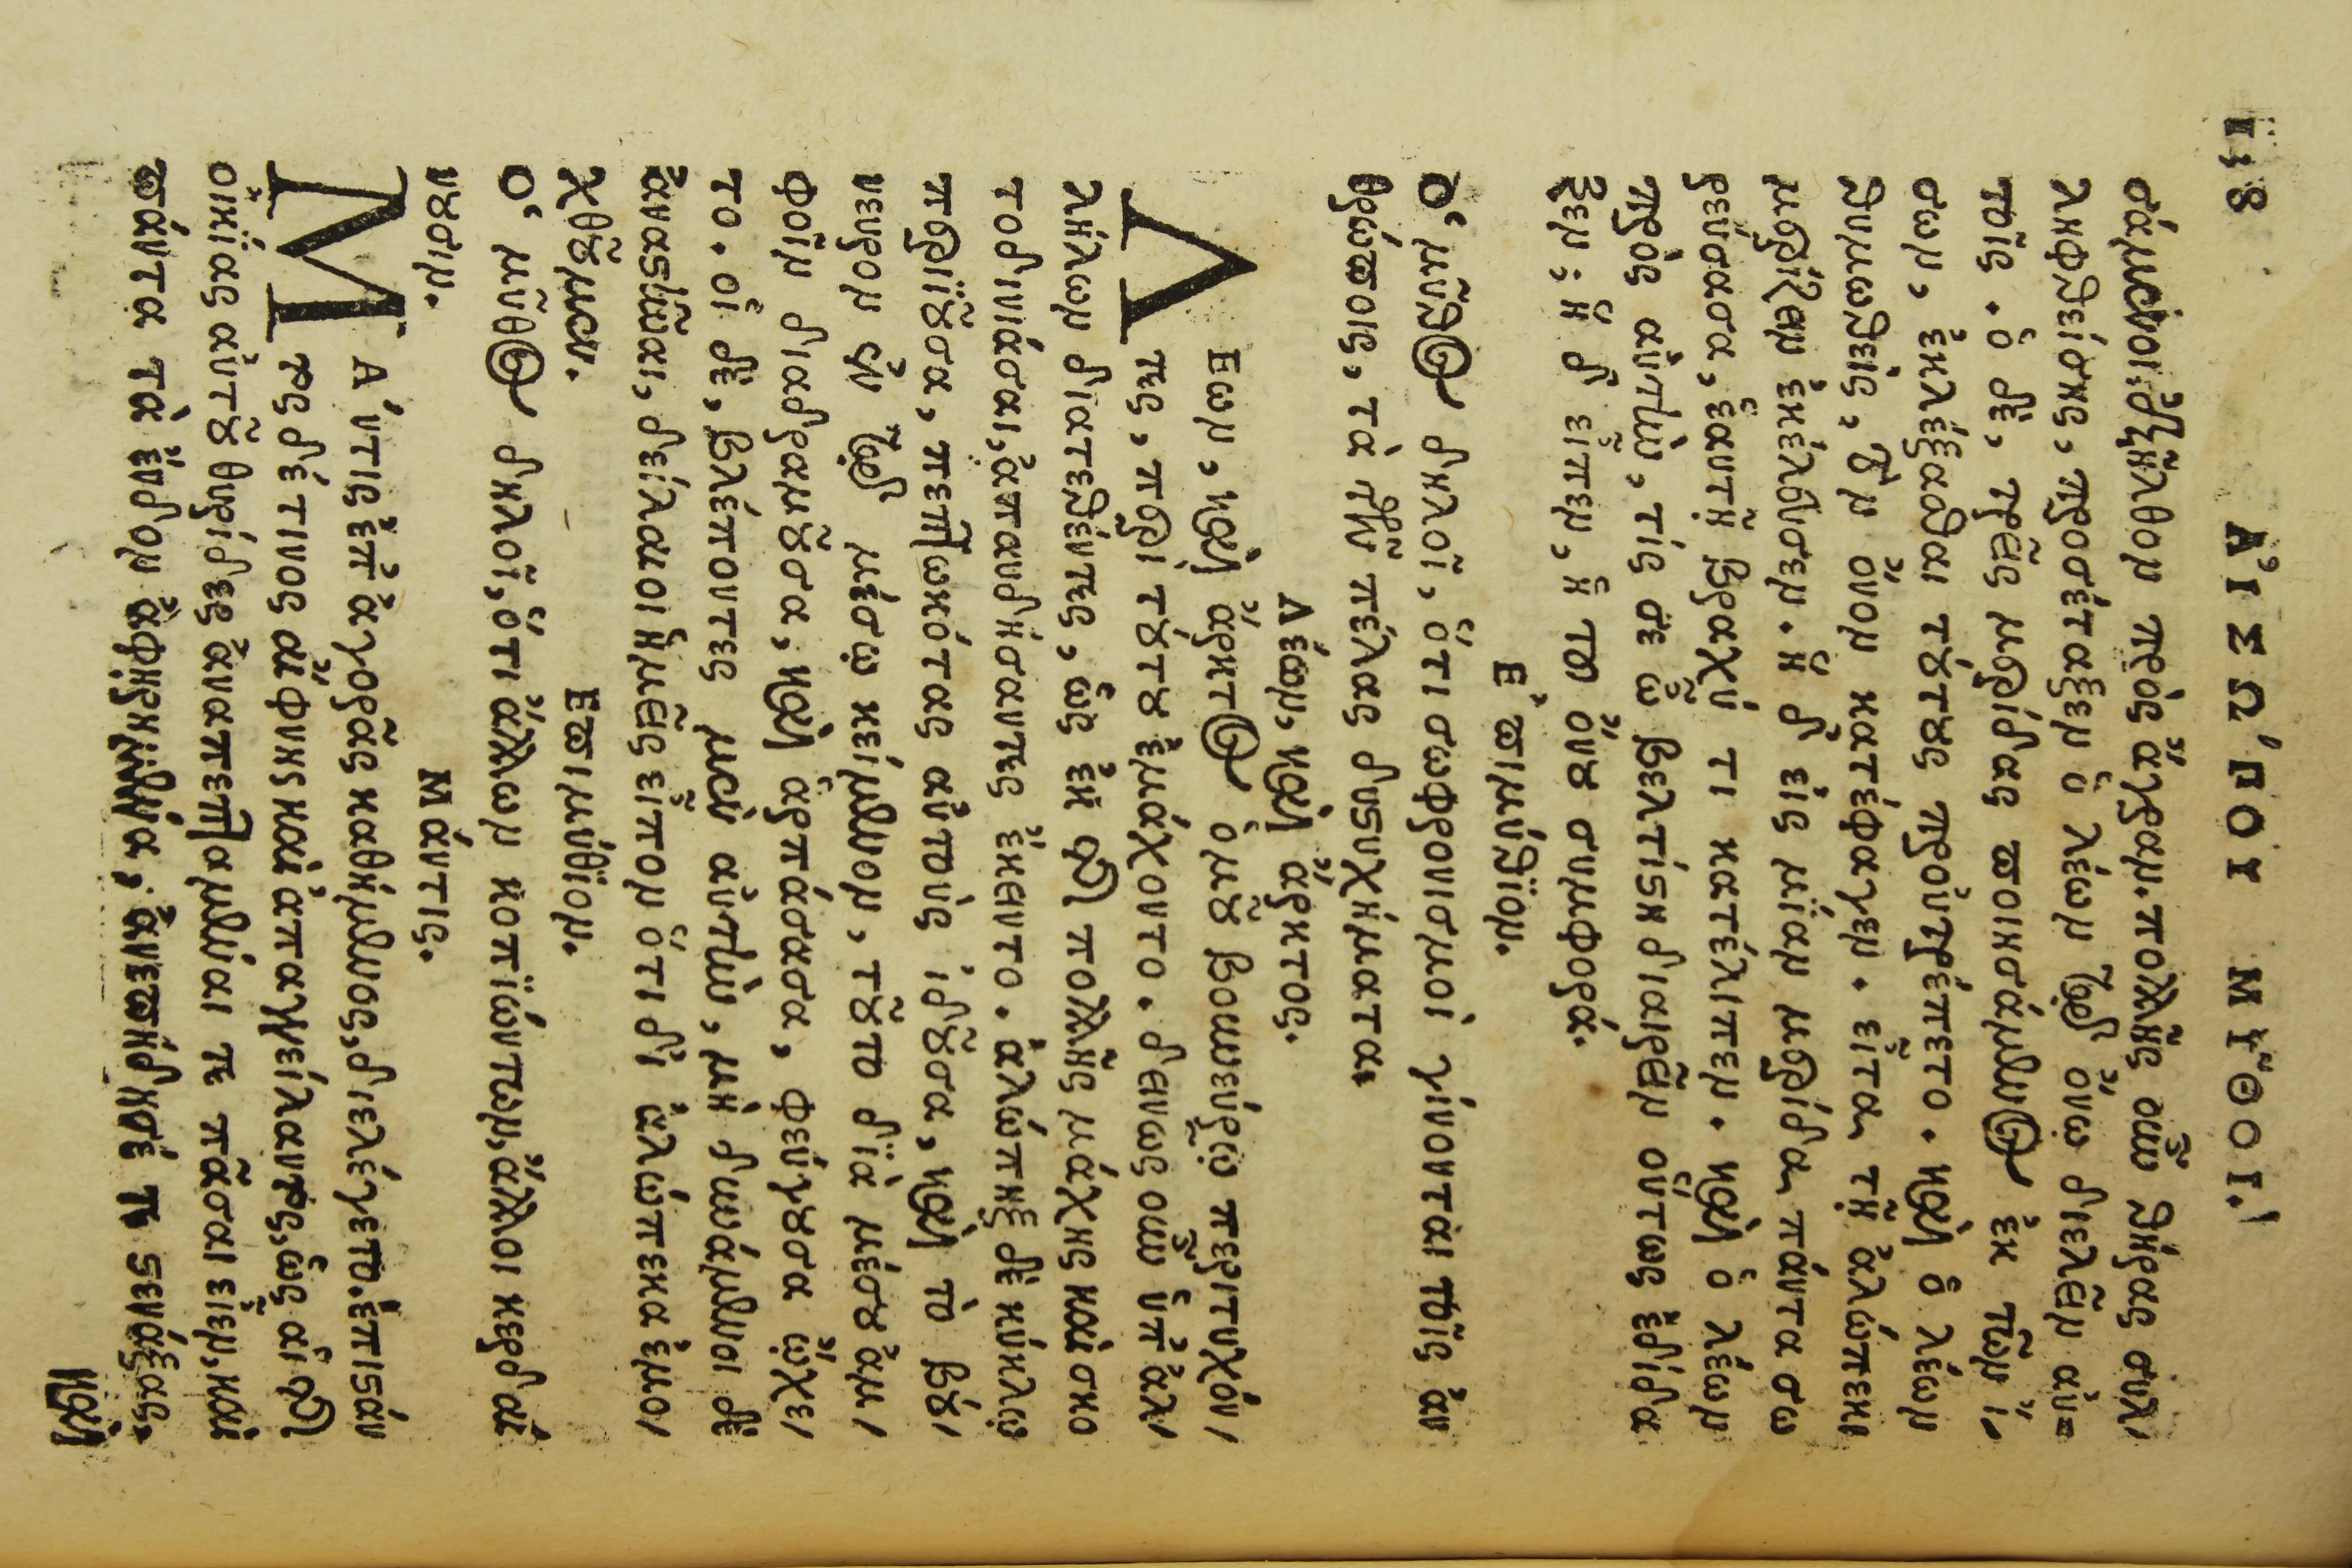 118 ΑἸΣΩ´ΠΟΥ ΜΥ͂ΘΟΙ.
σάμενοι, ἐξῆλθον πρὸς ἄγραν. πολλῆς οὖν θήρας συλ
ληφθείσης, προσέταξεν ὁ λέων τῷ ὄνῳ διελεῖν αὐ=
τοῖς. ὁ δὲ, τρεῖς μερίδας ποιησάμενος ἐκ τῶν ἴ-
σων, ἐκλέξασθαι τούτους προὐτρέπετο. καὶ ὁ λέων
θυμωθεὶς, τὸν ὄνον κατέφαγεν. εἶτα τῇ ἀλώπεκι
μερίζειν ἐκέλευσεν. ἡ δ' εἰς μίαν μερίδα πάντα σω
ρεύσασα, ἑαυτῇ βραχύ τι κατέλιπεν. καὶ ὁ λέων
πρὸς αὐτὴν, τίς σε ὦ βελτίστη διαιρεῖν οὕτως ἐδίδα
ξεν; ἡ δ' εἶπεν, ἡ τοῦ ὄνου συμφορά.
Ἐπιμύθιον.
Ὁ μῦθος δηλοῖ, ὅτι σωφρονισμοὶ γίνονται τοῖς ἀν
θρώποις, τὰ τῶν πέλας δυστυχήματα.
Λέων, καὶ ἄρκτος.
Λέων, καὶ ἄρκτος ὁμοῦ βουνεύρῳ περιτυχόν-
τες, περὶ τούτου ἐμάχοντο. δεινῶς οὖν ὑπ' ἀλ-
λήλων διατεθέντες, ὡς ἐκ τῆς πολλῆς μάχης καὶ σκο
τοδινιάσαι, ἀπαυδήσαντες ἔκειντο. ἀλώπηξ δὲ κύκλῳ
περιϊοῦσα, πεπτωκότας αὐτοὺς ἰδοῦσα, καὶ τὸ βού-
νευρον ἐν τῷ μέσῳ κείμενον, τοῦτο διὰ μέσου ἀμ-
φοῖν διαδραμοῦσα, καὶ ἁρπάσασα, φεύγουσα ᾤχε-
το. οἱ δὲ, βλέποντες μὲν αὐτὴν, μὴ δυνάμενοι δὲ
ἀναστῆναι, δείλαιοι ἡμεῖς εἶπον ὅτι δι' ἀλώπεκα ἐμο-
χθοῦμεν.
Ἐπιμύθιον.
Ὁ μῦθος δηλοῖ, ὅτι ἄλλων κοπιώντων, ἄλλοι κερδαί
νουσιν.
Μάντις.
Μάντις ἐπ' ἀγορᾶς καθήμενος, διελέγετο. ἐπιστάν
τος δέ τινος αἴφνης καὶ ἀπαγγείλαντος, ὡς αἱ τῆς
οἰκίας αὐτοῦ θυρίδες ἀναπεπταμέναι τε πᾶσαι εἶεν, καὶ
πάντα τὰ ἔνδον ἀφῃρημένα, ἀνεπήδησέ τε στενάξας,
καὶ